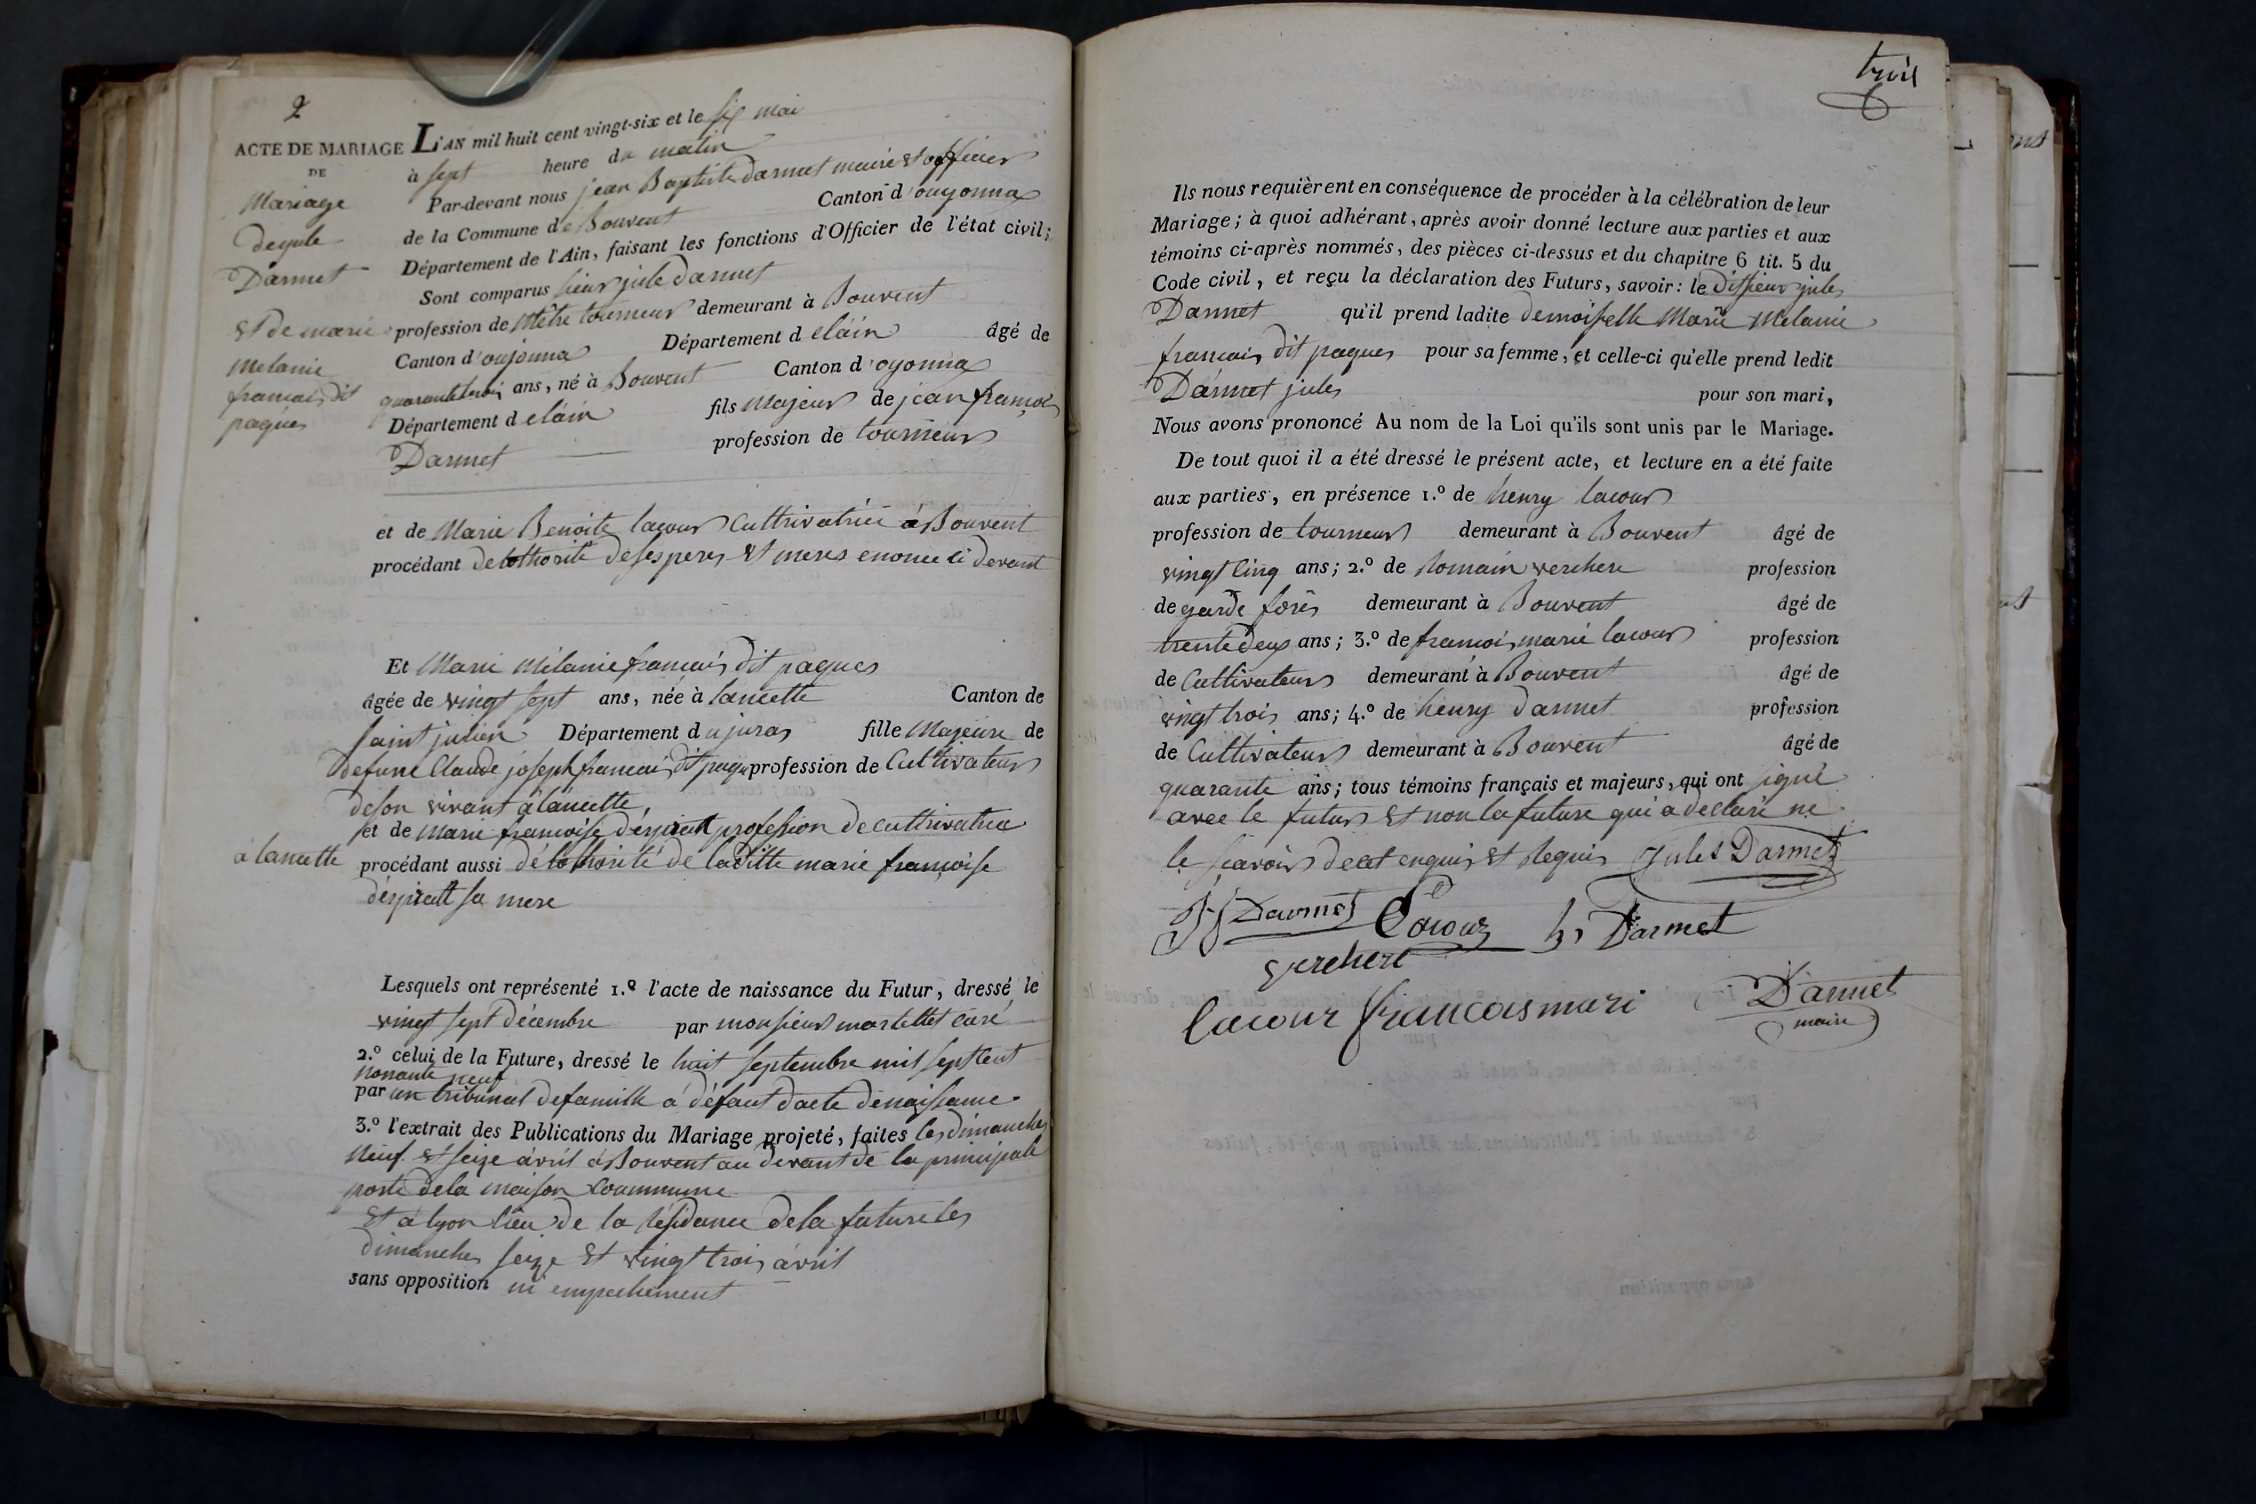 2
ACTE DE MARIAGE
DE
Mariage
de jule
Darmet
Et de marie
melanie
francais dit
paques
L'AN mil huit cent vingt-six et le six mai
à sept heure du matin
Par-devant nous jean Baptiste darmet maire et officier
de la Commune de Bouvent Canton d'ouyonnax
Département de l'Ain, faisant les fonctions d'Officier de l'état civil;
Sont comparus sieur jule darmet
profession de Metre tourneur demeurant à Bouvent
Canton d'oujonnax Département d elain âgé de
quarante trois ans, né à Bouvent Canton d'oyonnax
Département d elain fils Majeur de jean françois
Darmet profession de tourneur
et de Marie Benoite lacour Cultrivatrice à Bouvent
procédant de lothorité de ses peres Et meres enoncé ci devant
Et Marie Mélanie francais dit paques
âgée de vingt sept ans, née à lancette Canton de
saint julien Département du juras fille Majeure de
defunt Claude joseph francais dit paque profession de Cultivateur
de son vivant à lancette,
et de marie francoise d'épiratt profession de cultrivatrice
à lancette
procédant aussi de lothorité de laditte marie françoise
d'épiratt sa mere
Lesquels ont représenté 1.º l'acte de naissance du Futur, dressé le
vingt sept décembre par monsieur martellet curé
2.º celui de la Future, dressé le huit septembre mil sept cent
nonante neuf
par un tribunal de famille à défaut dacte denaissance.
3.º l'extrait des Publications du Mariage projeté, faites les dimanches
Neuf Et seize avril à Bouvent au devant de la principale
porte de la maison Coummune
Et à lyon lieu de la résidance de la future les
dimanches seize Et vingt trois avril
sans opposition ni empechement
trois
Ils nous requièrent en conséquence de procéder à la célébration de leur
Mariage; à quoi adhérant, après avoir donné lecture aux parties et aux
témoins ci-après nommés, des pièces ci-dessus et du chapitre 6 tit. 5 du
Code civil, et reçu la déclaration des Futurs, savoir: le dit sieur jules
Darmet qu'il prend ladite demoiselle Marie Melanie
francais dit paques pour sa femme, et celle-ci qu'elle prend ledit
Darmet jules pour son mari,
Nous avons prononcé Au nom de la Loi qu'ils sont unis par le Mariage.
De tout quoi il a été dressé le présent acte, et lecture en a été faite
aux parties, en présence 1.º de henry lacour
profession de tourneur demeurant à Bouvent âgé de
vingt cinq ans; 2.º de Romain verchere profession
de garde forès demeurant à Bouvent âgé de
trente deux ans; 3.º de francois marie lacour profession
de Cultivateur demeurant à Bouvent âgé de
vingt trois ans; 4.º de henry darmet profession
de Cultivateur demeurant à Bouvent âgé de
quarante ans; tous témoins français et majeurs, qui ont signé
avec le futur Et non la future qui a declaré ne
le scavoir de cet enquis Et Requis Jules Darmet
Darmet Lacour h Darmet
verchere
lacour francois mari Darmet
maire